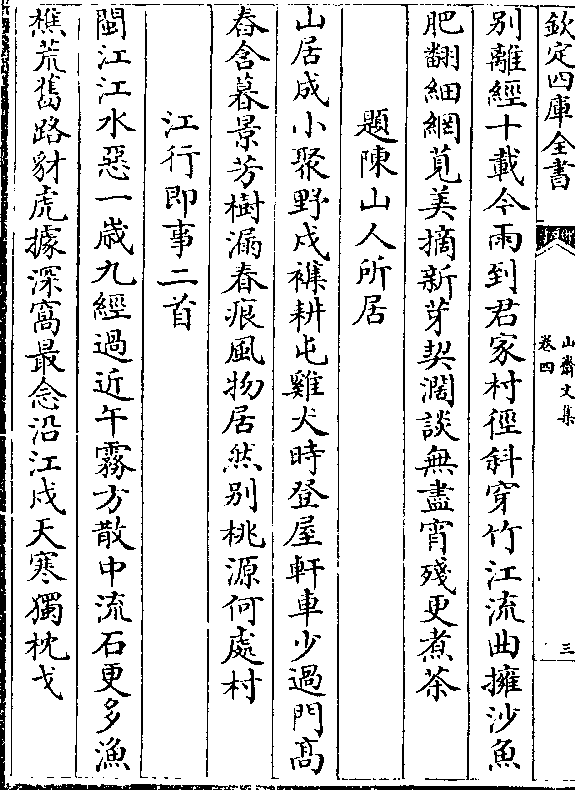 欽定四庫全書
山齋文集
卷四
三
別離經十載今兩到君家村徑斜穿竹江流曲擁沙魚
肥翻細網莧美摘新芽契濶談無盡宵殘更煮茶
題陳山人所居
山居成小聚野戍襍耕屯雞犬時登屋軒車少過門髙
舂含暮景芳樹漏春痕風物居然别桃源何處村
江行即事二首
閩江江水惡一歲九經過近午霧方散中流石更多漁
樵荒舊路豺虎據深窩最念沿江戍天寒獨枕戈